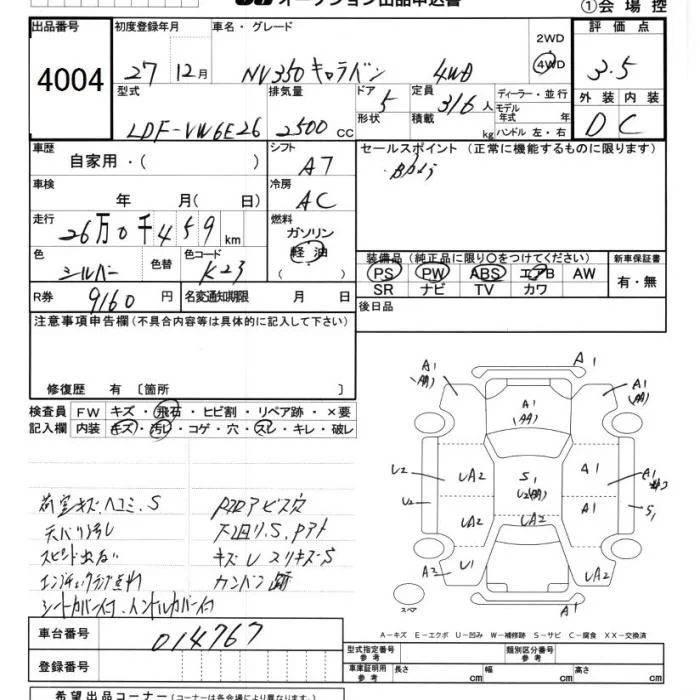 オークション出品申込書
①会場控
出品番号 初度登録年月 車名・グレード 評価点
4004
27 12月 NV350 キャラバン 4WD
2WD
4WD
3.5
型式 排気量 ドア 定員 ディーラー・並行 外装 内装
LDF-VW6E26 2500 CC
5 3/6人
モデル年式 年
形状 積載 kg ハンドル 左・右
D C
車歴 シフト セールスポイント (正常に機能するものに限ります)
自家用・( ) A7
車検 冷房
年 月( 日) AC
走行 燃料
26万0千459km
ガソリン
軽油
( )
色 色替 色コード
シルバー K23
装備品 (純正品に限り○をつけてください) 新車保証書
PS PW ABS エアB AW 有・無
SR ナビ TV カワ
R券 9160円 名変通知期限 月 日
後日品
注意事項申告欄(不具合内容等は具体的に記入して下さい)
修復歴 有 〔箇所 〕
検査員 FW キズ・飛石・ヒビ割・リペア跡・×要
記入欄 内装 キズ・汚レ・コゲ・穴・スレ・キレ・破レ
荷室キズヘコミ、S
天バリ汚レ
下回りS、
キズ スリキズS
カンバン跡
A1
A1
A1
A1
U2
UA2
S1
A1
A1
U2
UA2
UA2
A1
S1
A2
U1
UA2
A1
スペア
A-キズ E-エクボ U-凹み W-補修跡 S-サビ C-腐食 XX-交換済
車台番号 014767
型式指定番号 参考 類別区分番号 参考
登録番号
車庫証明用 参考 長さ cm 幅 cm 高さ cm
希望出品コーナー(コーナーは各会場により異なります)